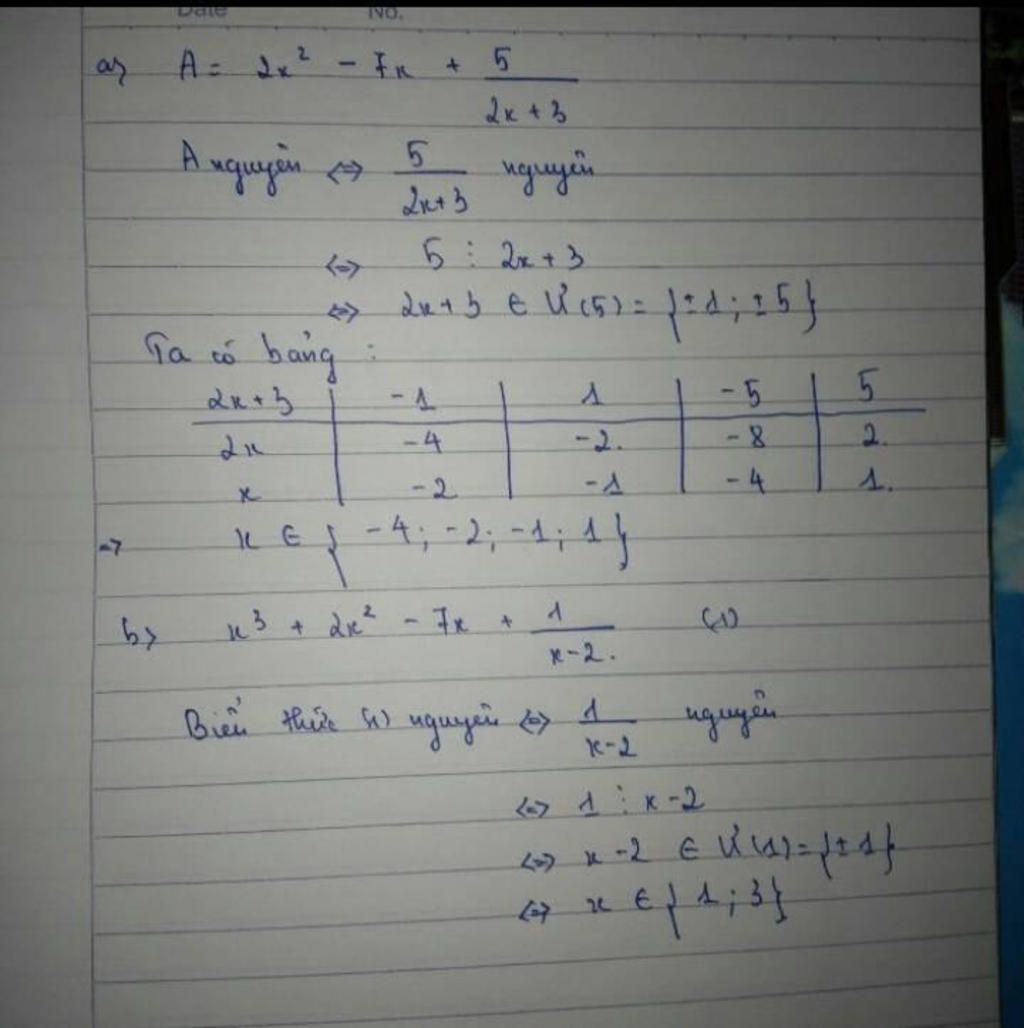 Date No.
a) A = 2x² - 7x + 5/(2x+3)
A nguyên <=> 5/(2x+3) nguyên
<=> 5 ⋮ 2x+3
<=> 2x+3 ∈ Ư(5) = {±1; ±5}
Ta có bảng :
2x+3 | -1 | 1 | -5 | 5
2x | -4 | -2. | -8 | 2.
x | -2 | -1 | -4 | 1.
=> x ∈ { -4; -2; -1; 1 }
b) x³ + 2x² - 7x + 1/(x-2). (1)
Biểu thức (1) nguyên <=> 1/(x-2) nguyên
<=> 1 ⋮ x-2
<=> x-2 ∈ Ư(1) = {±1}
<=> x ∈ { 1; 3 }